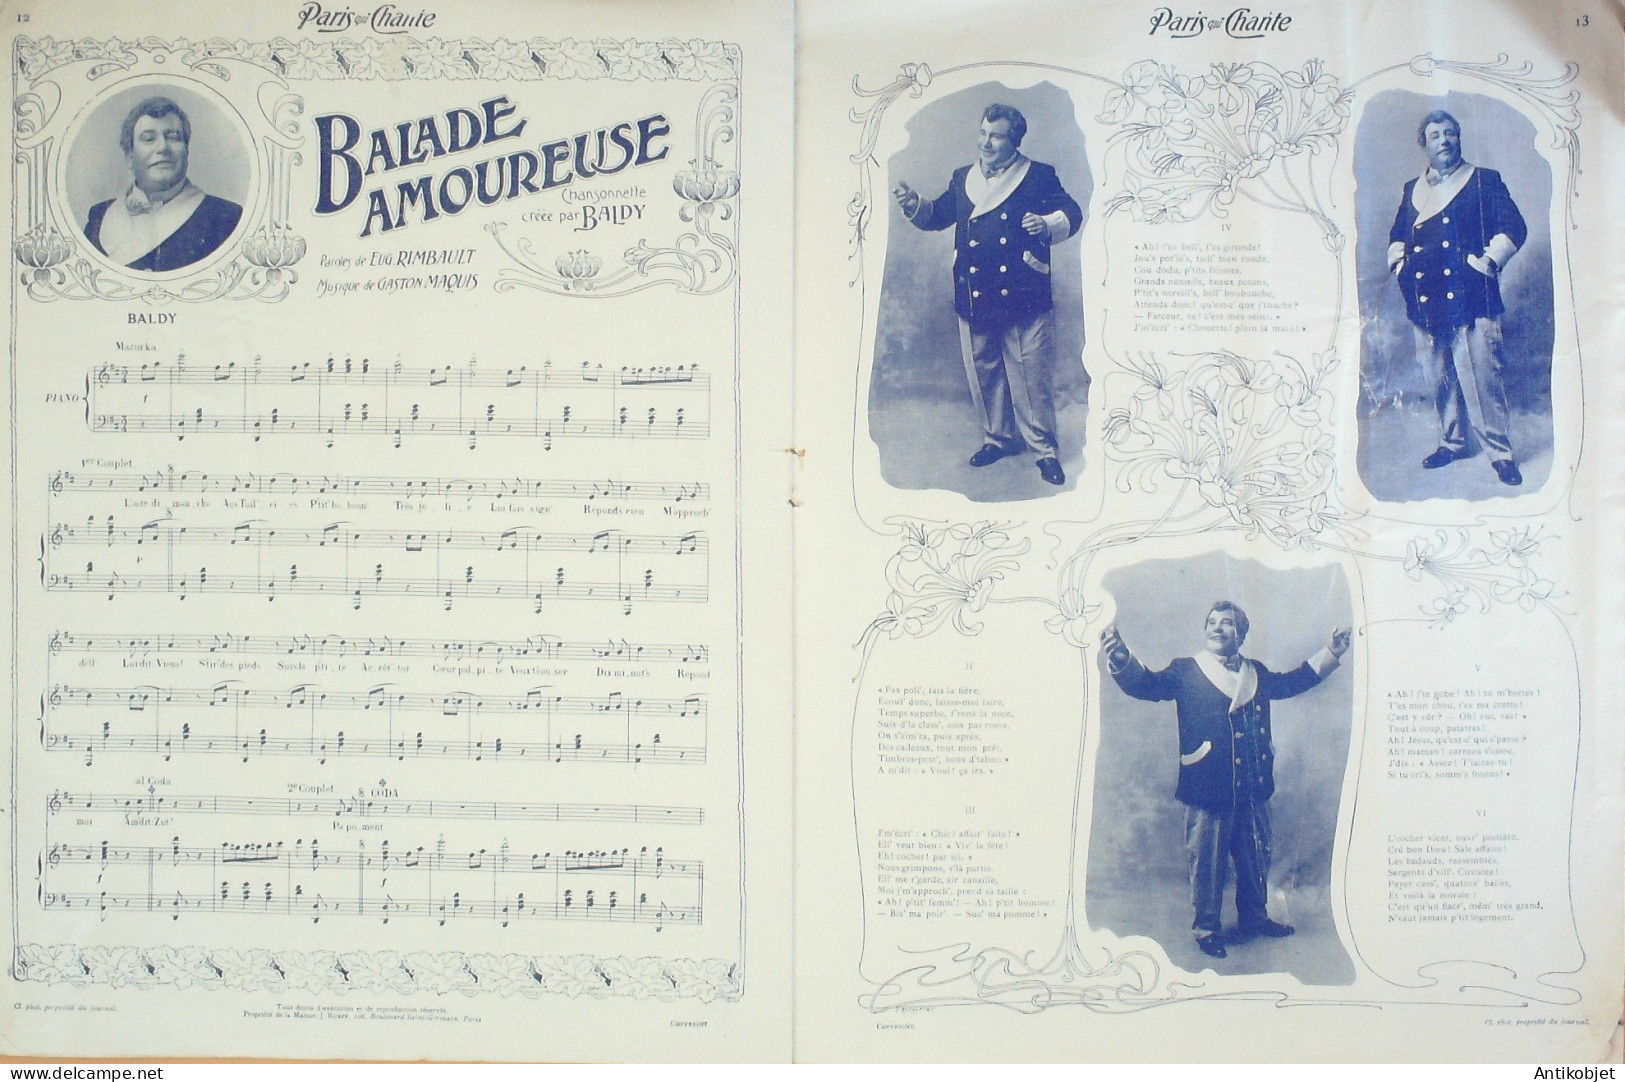 12
Paris qui Chante
BALADE
AMOUREUSE
Chansonnette
créée par BALDY
Paroles de EUG. RIMBAULT
Musique de GASTON MAQUIS
BALDY
Mazurka
PIANO
1er Couplet
L'autr' di_man_che Aux Tuil'_ri_es P'tit' bo_bonn' Très jo_li_e Lui fais sign' Réponds rien M'approch'
d'ell Lui dit: Viens! Sur' des pieds Suis la p'ti_te Ar_rêt'-toi Cœur pal_pi_te Veux t'cau_ser Dix mi_nut's Répond
moi Am'dit: Zut!
al Coda
2e Couplet
CODA
Pa po_ment
Cl. phot. propriété du journal.
Tous droits d'exécution et de reproduction réservés.
Propriété de la Maison J. Rueff, 106, Boulevard Saint-Germain, Paris
COPYRIGHT
Paris qui Chante
13
IV
« Ah! t'es bell', t'es gironde!
Jou's pot'lé's, taill' bien ronde,
Cou dodu, p'tits frisons,
Grands nenuils, beaux petons,
P'tit's noreill's, bell' boubouche,
Attends donc! qu'est-c' que j'touche?
— Farceur, va! c'est mes seins. »
J'm'écri' : « Chouette! plein la main! »
II
« Pas poli', fais la fière,
Ecout' donc, laisse-moi faire,
Temps superbe, f'rons la noce,
Suis d'la class', sois pas rosse,
On s'aim'ra, puis après,
Des cadeaux, tout mon prêt,
Timbres-post', bons d'tabac. »
A m'dit : « Voui! ça ira. »
III
J'm'écri' : « Chic! affair' faite! »
Ell' veut bien : « Viv' la fête!
Eh! cocher! par ici. »
Nous grimpons, v'là partis.
Ell' me r'garde, air canaille,
Moi j'm'approch', prend sa taille :
« Ah! p'tit' femm'! — Ah! p'tit homme!
— Bis' ma poir'. — Suc' ma pomme! »
V
« Ah! j'te gobe! Ah! tu m'bottes!
T'es mon chou, t'es ma crotte!
C'est y sûr? — Oh! oui, vas! »
Tout à coup, patatras!
Ah! Jésus, qu'est-c' qui s'passe?
Ah! maman! carreau s'casse.
J'dis : « Assez! T'tairas-tu!
Si tu cri's, somm's foutus! »
VI
L'cocher vient, ouvr' portière,
Cré bon Dieu! Sale affaire!
Les badauds, rassemblés,
Sergents d'vill'. Circulez!
Payer cass', quatorz' balles,
Et voilà la morale :
C'est qu'un fiacr', mêm' très grand,
N'vaut jamais p'tit logement.
COPYRIGHT.
Cl. phot. propriété du journal.
www.delcampe.net
Antikobjet